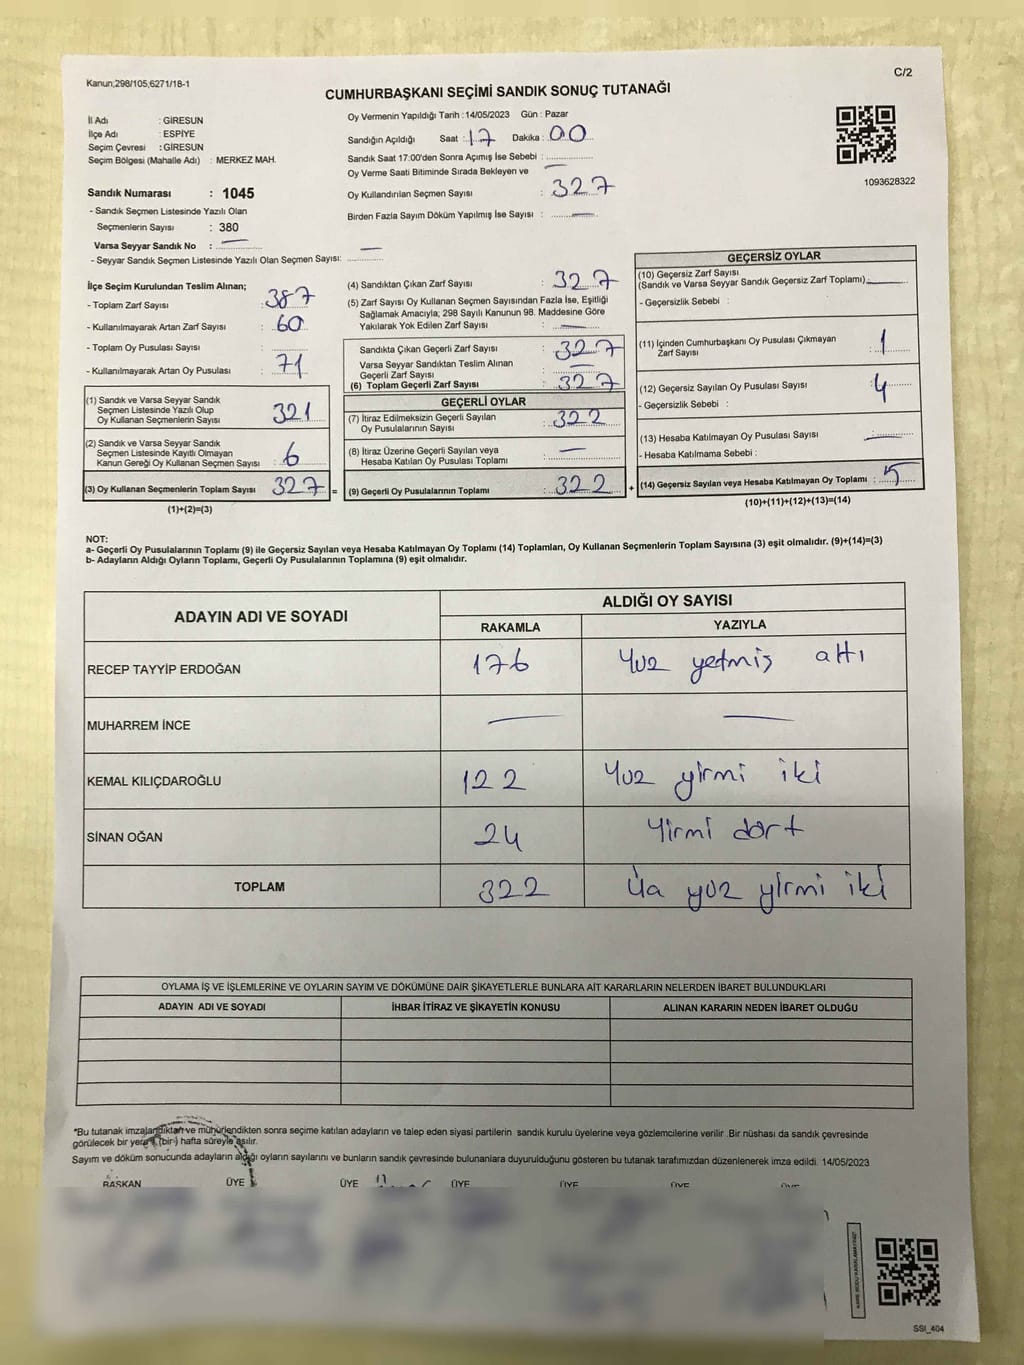 Kanun;298/105,6271/18-1
C/2
CUMHURBAŞKANI SEÇİMİ SANDIK SONUÇ TUTANAĞI
İl Adı : GİRESUN
İlçe Adı : ESPİYE
Seçim Çevresi : GİRESUN
Seçim Bölgesi (Mahalle Adı) : MERKEZ MAH.
Oy Vermenin Yapıldığı Tarih : 14/05/2023 Gün : Pazar
Sandığın Açıldığı Saat : 17 Dakika : 00
Sandık Saat 17:00'den Sonra Açımış İse Sebebi :
Oy Verme Saati Bitiminde Sırada Bekleyen ve
Oy Kullandırılan Seçmen Sayısı : 327
Birden Fazla Sayım Döküm Yapılmış İse Sayısı : —
1093628322
Sandık Numarası : 1045
- Sandık Seçmen Listesinde Yazılı Olan
Seçmenlerin Sayısı : 380
Varsa Seyyar Sandık No : —
- Seyyar Sandık Seçmen Listesinde Yazılı Olan Seçmen Sayısı: —
İlçe Seçim Kurulundan Teslim Alınan;
- Toplam Zarf Sayısı : 387
- Kullanılmayarak Artan Zarf Sayısı : 60
- Toplam Oy Pusulası Sayısı :
- Kullanılmayarak Artan Oy Pusulası : 71
(1) Sandık ve Varsa Seyyar Sandık
Seçmen Listesinde Yazılı Olup
Oy Kullanan Seçmenlerin Sayısı : 321
(2) Sandık ve Varsa Seyyar Sandık
Seçmen Listesinde Kayıtlı Olmayan
Kanun Gereği Oy Kullanan Seçmen Sayısı : 6
(3) Oy Kullanan Seçmenlerin Toplam Sayısı : 327 =
(1)+(2)=(3)
(4) Sandıktan Çıkan Zarf Sayısı : 327
(5) Zarf Sayısı Oy Kullanan Seçmen Sayısından Fazla İse, Eşitliği
Sağlamak Amacıyla; 298 Sayılı Kanunun 98. Maddesine Göre
Yakılarak Yok Edilen Zarf Sayısı : —
Sandıkta Çıkan Geçerli Zarf Sayısı : 327
Varsa Seyyar Sandıktan Teslim Alınan
Geçerli Zarf Sayısı : —
(6) Toplam Geçerli Zarf Sayısı : 327
GEÇERLİ OYLAR
(7) İtiraz Edilmeksizin Geçerli Sayılan
Oy Pusulalarının Sayısı : 322
(8) İtiraz Üzerine Geçerli Sayılan veya
Hesaba Katılan Oy Pusulası Toplamı : —
(9) Geçerli Oy Pusulalarının Toplamı : 322 +
GEÇERSİZ OYLAR
(10) Geçersiz Zarf Sayısı
(Sandık ve Varsa Seyyar Sandık Geçersiz Zarf Toplamı) : —
- Geçersizlik Sebebi :
(11) İçinden Cumhurbaşkanı Oy Pusulası Çıkmayan
Zarf Sayısı : 1
(12) Geçersiz Sayılan Oy Pusulası Sayısı : 4
- Geçersizlik Sebebi :
(13) Hesaba Katılmayan Oy Pusulası Sayısı : —
- Hesaba Katılmama Sebebi :
(14) Geçersiz Sayılan veya Hesaba Katılmayan Oy Toplamı : 5
(10)+(11)+(12)+(13)=(14)
NOT:
a- Geçerli Oy Pusulalarının Toplamı (9) ile Geçersiz Sayılan veya Hesaba Katılmayan Oy Toplamı (14) Toplamları, Oy Kullanan Seçmenlerin Toplam Sayısına (3) eşit olmalıdır. (9)+(14)=(3)
b- Adayların Aldığı Oyların Toplamı, Geçerli Oy Pusulalarının Toplamına (9) eşit olmalıdır.
ADAYIN ADI VE SOYADI
ALDIĞI OY SAYISI
RAKAMLA YAZIYLA
RECEP TAYYİP ERDOĞAN 176 Yüz yetmiş altı
MUHARREM İNCE — —
KEMAL KILIÇDAROĞLU 122 Yüz yirmi iki
SİNAN OĞAN 24 Yirmi dört
TOPLAM 322 Üç yüz yirmi iki
OYLAMA İŞ VE İŞLEMLERİNE VE OYLARIN SAYIM VE DÖKÜMÜNE DAİR ŞİKAYETLERLE BUNLARA AİT KARARLARIN NELERDEN İBARET BULUNDUKLARI
ADAYIN ADI VE SOYADI İHBAR İTİRAZ VE ŞİKAYETİN KONUSU ALINAN KARARIN NEDEN İBARET OLDUĞU
*Bu tutanak imzalandıktan ve mühürlendikten sonra seçime katılan adayların ve talep eden siyasi partilerin sandık kurulu üyelerine veya gözlemcilerine verilir .Bir nüshası da sandık çevresinde
görülecek bir yere 1 (bir ) hafta süreyle asılır.
Sayım ve döküm sonucunda adayların aldığı oyların sayılarını ve bunların sandık çevresinde bulunanlara duyurulduğunu gösteren bu tutanak tarafımızdan düzenlenerek imza edildi. 14/05/2023
BAŞKAN ÜYE ÜYE ÜYE ÜYE ÜYE ÜYE
SSI_404